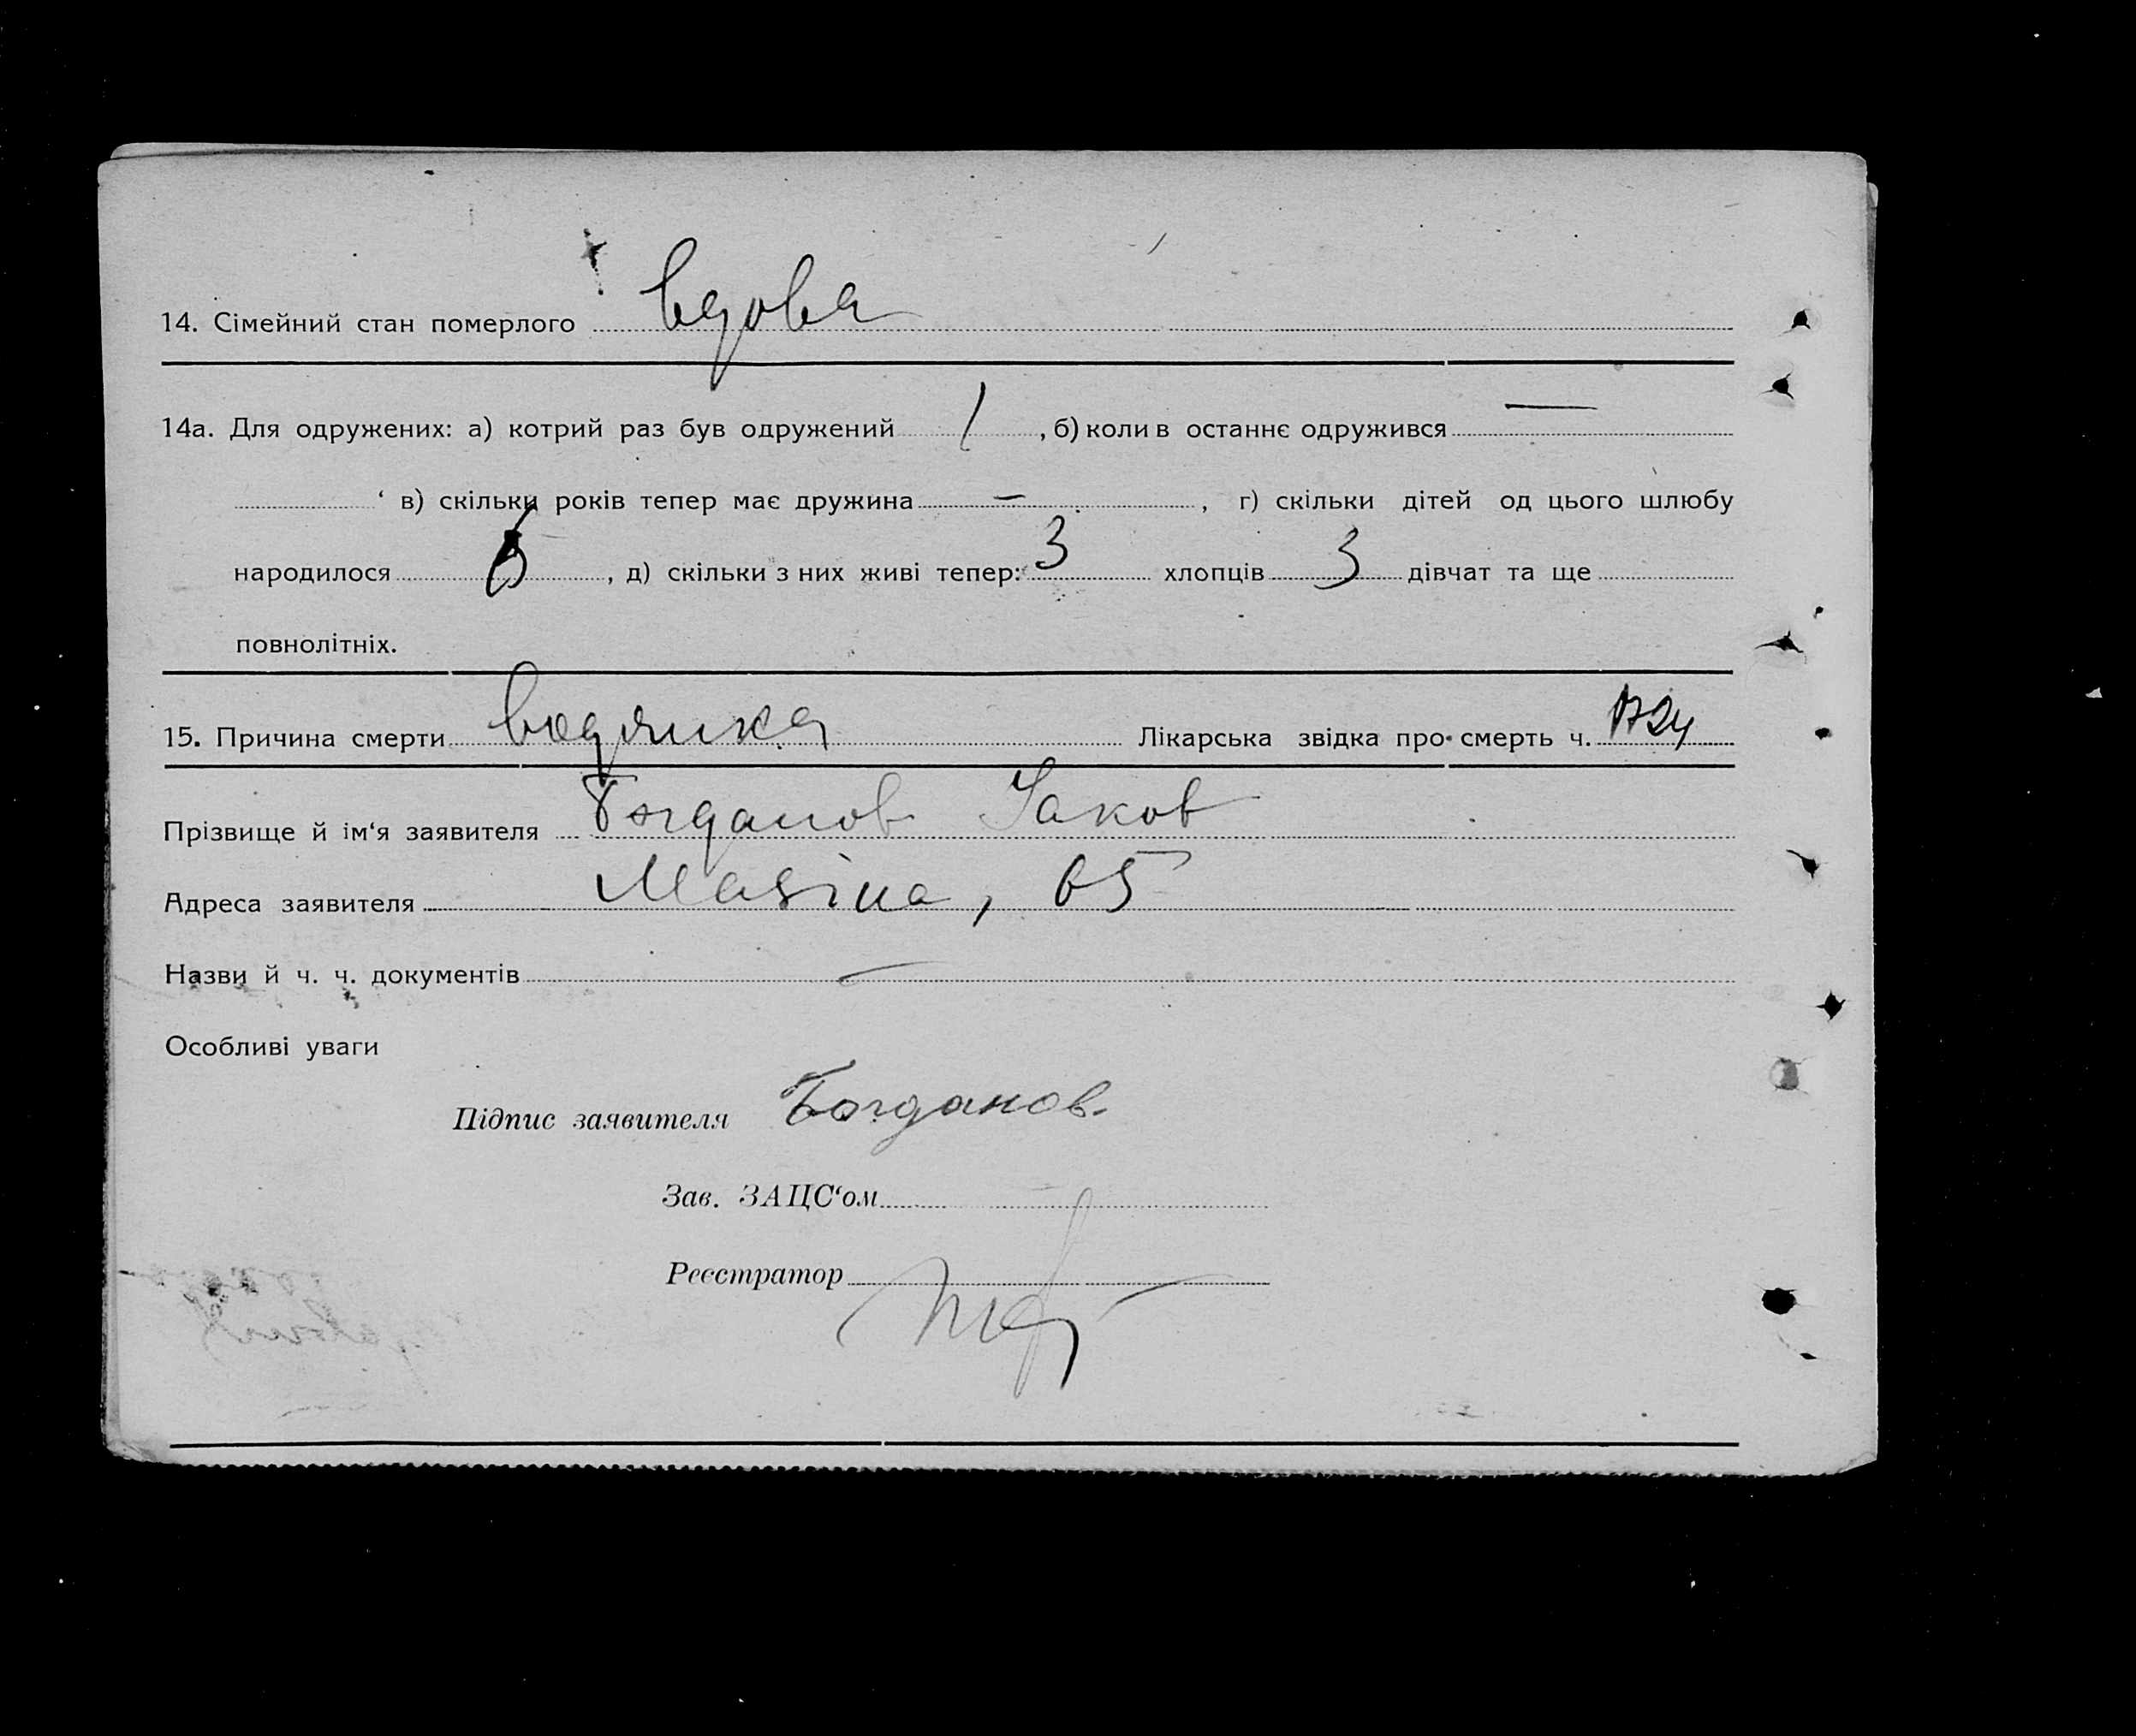 14. Сімейний стан померлого вдова
14а. Для одружених: а) котрий раз був одружений 1, б) коли в останнє одружився —
в) скільки років тепер має дружина —, г) скільки дітей од цього шлюбу
народилося 6, д) скільки з них живі тепер: 3 хлопців 3 дівчат та ще
повнолітніх.
15. Причина смерти водянка Лікарська звідка про смерть ч.
Прізвище й ім‘я заявителя Богданов Яков
Адреса заявителя 65
Назви й ч. ч. документів —
Особливі уваги
Підпис заявителя Богданов.
Зав. ЗАЦС‘ом
Реєстратор